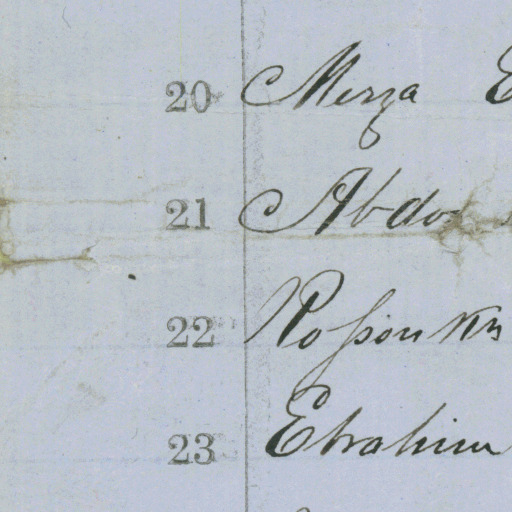 20 Merza E
21 Abdo
22 Rossou Kn
23 Ebrahim